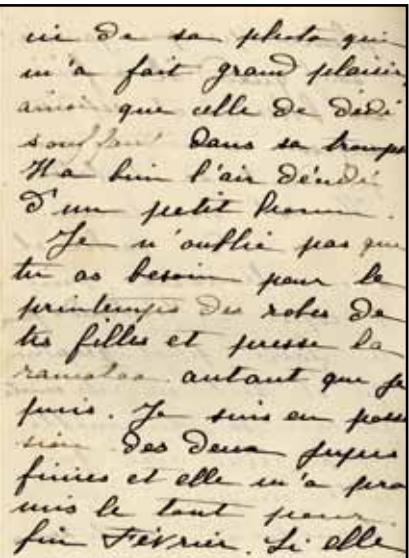 ci de sa photo qui
m'a fait grand plaisir,
ainsi que celle de dédé
soufflant dans sa trompe
Il a bien l'air décidé
d'un petit homme.
Je n'oublie pas que
tu as besoin pour le
printemps des robes de
tes filles et presse la
autant que je
puis. Je suis en posse
sion des deux jupes
finies et elle m'a pro
mis le tout pour
fin Février. Si elle